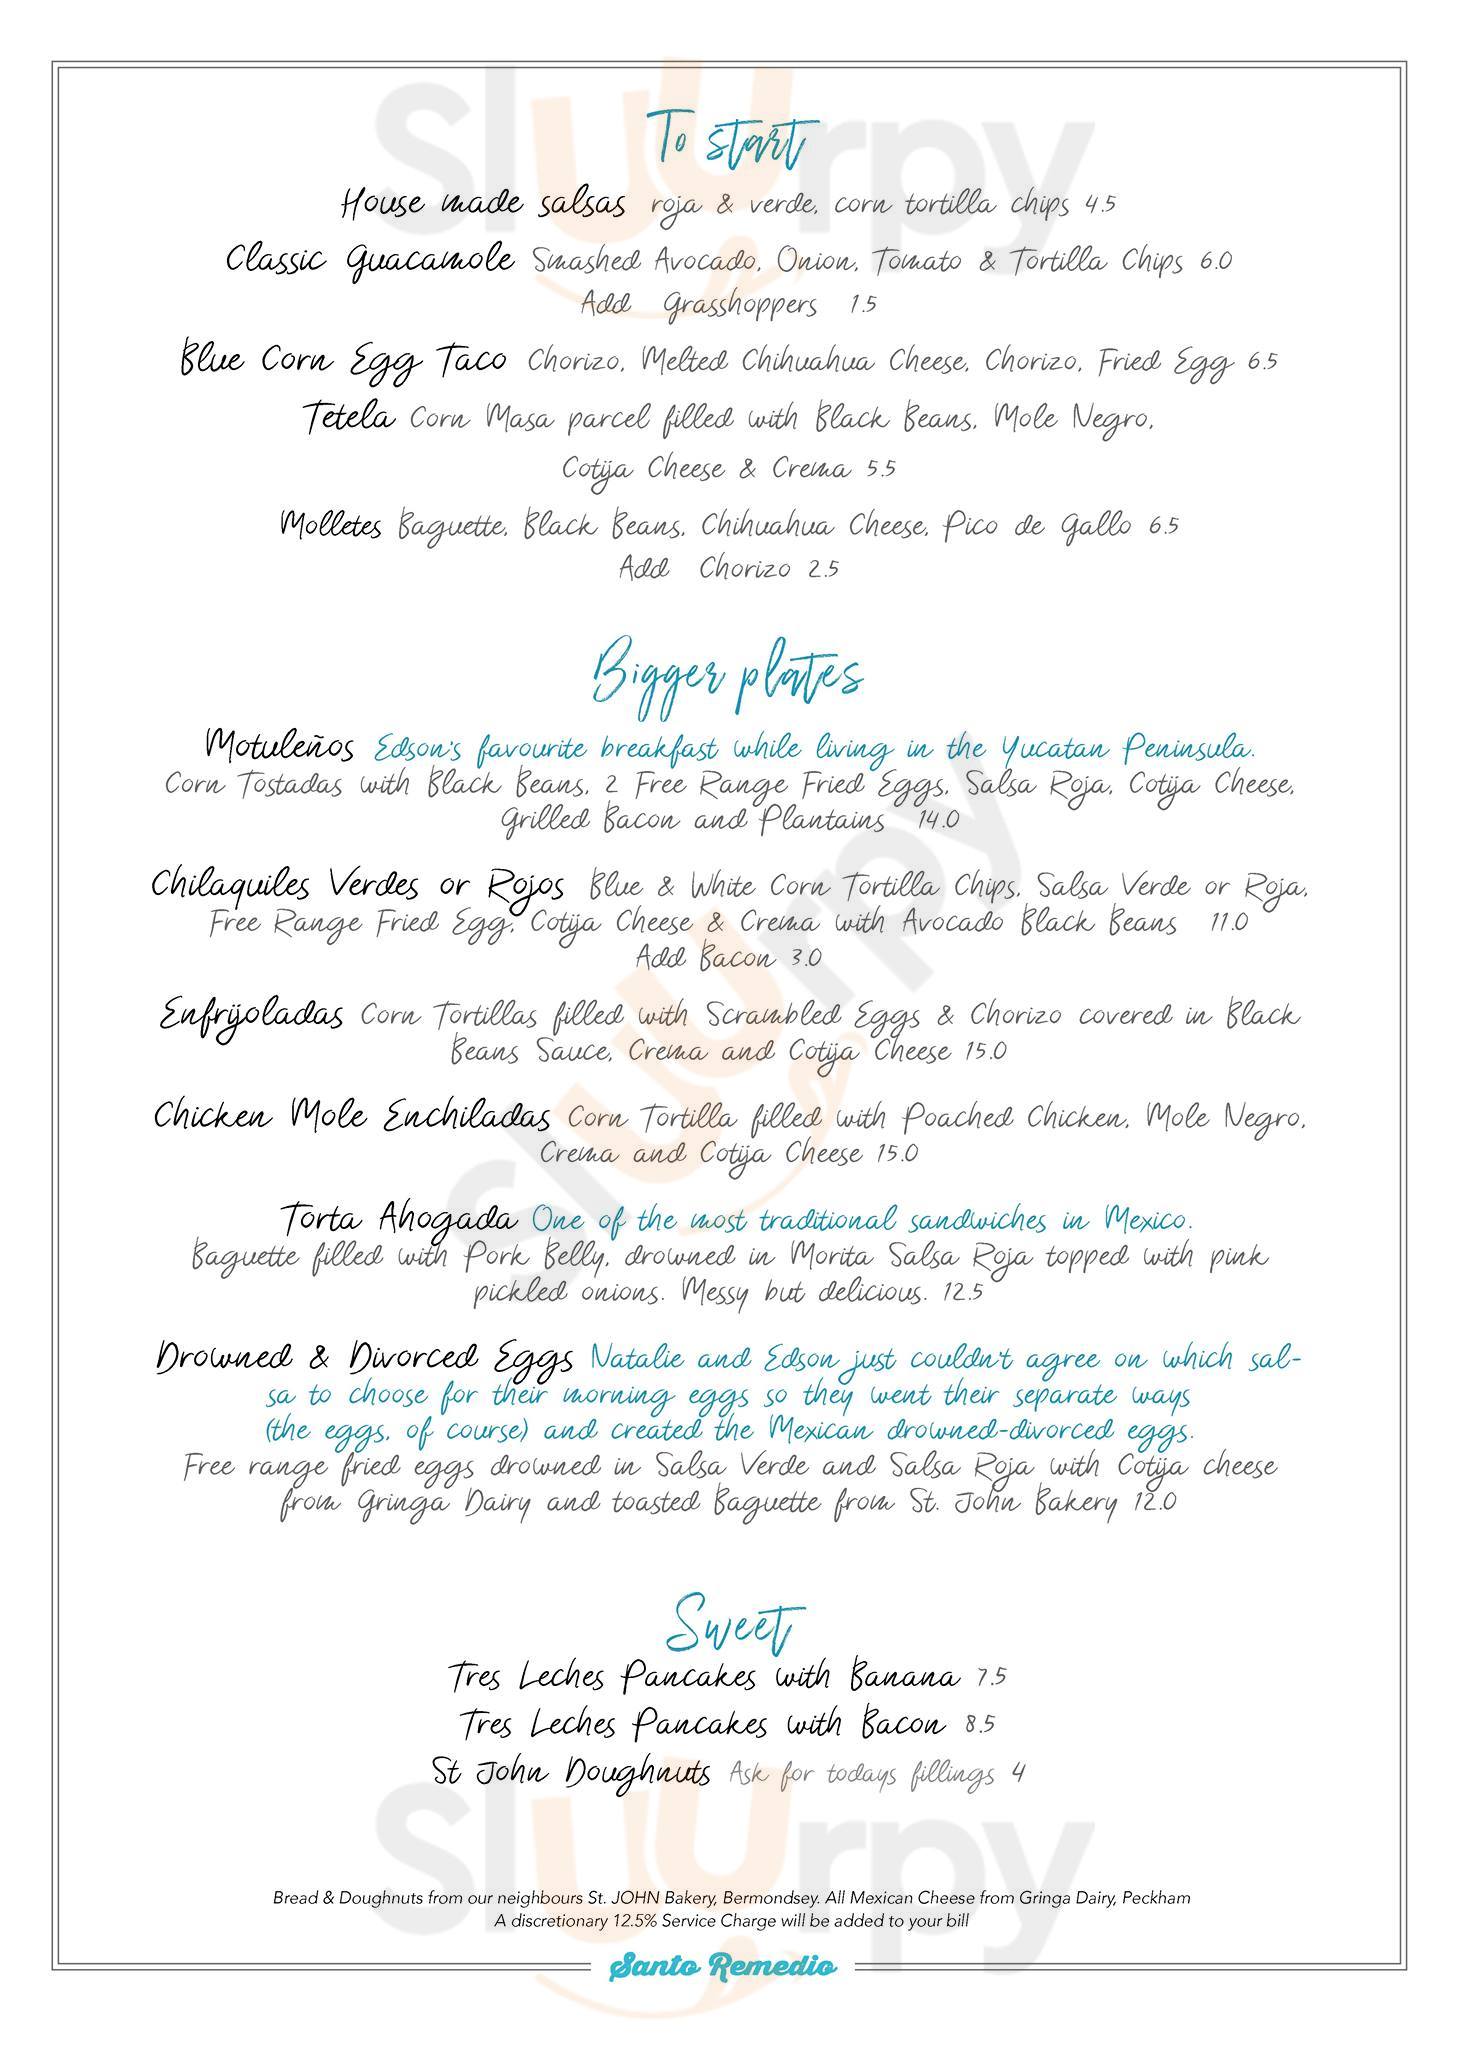 To start
House made salsas roja & verde, corn tortilla chips 4.5
Classic Guacamole Smashed Avocado, Onion, Tomato & Tortilla Chips 6.0
Add Grasshoppers 1.5
Blue Corn Egg Taco Chorizo, Melted Chihuahua Cheese, Chorizo, Fried Egg 6.5
Tetela Corn Masa parcel filled with Black Beans, Mole Negro,
Cotija Cheese & Crema 5.5
Molletes Baguette, Black Beans, Chihuahua Cheese, Pico de Gallo 6.5
Add Chorizo 2.5
Bigger plates
Motuleños Edson's favourite breakfast while living in the Yucatan Peninsula.
Corn Tostadas with Black Beans, 2 Free Range Fried Eggs, Salsa Roja, Cotija Cheese,
Grilled Bacon and Plantains 14.0
Chilaquiles Verdes or Rojos Blue & White Corn Tortilla Chips, Salsa Verde or Roja,
Free Range Fried Egg, Cotija Cheese & Crema with Avocado Black Beans 11.0
Add Bacon 3.0
Enfrijoladas Corn Tortillas filled with Scrambled Eggs & Chorizo covered in Black
Beans Sauce, Crema and Cotija Cheese 15.0
Chicken Mole Enchiladas Corn Tortilla filled with Poached Chicken, Mole Negro,
Crema and Cotija Cheese 15.0
Torta Ahogada One of the most traditional sandwiches in Mexico.
Baguette filled with Pork Belly, drowned in Morita Salsa Roja topped with pink
pickled onions. Messy but delicious. 12.5
Drowned & Divorced Eggs Natalie and Edson just couldn't agree on which sal-
sa to choose for their morning eggs so they went their separate ways
(the eggs, of course) and created the Mexican drowned-divorced eggs.
Free range fried eggs drowned in Salsa Verde and Salsa Roja with Cotija cheese
from Gringa Dairy and toasted Baguette from St. John Bakery 12.0
Sweet
Tres Leches Pancakes with Banana 7.5
Tres Leches Pancakes with Bacon 8.5
St John Doughnuts Ask for todays fillings 4
Bread & Doughnuts from our neighbours St. JOHN Bakery, Bermondsey. All Mexican Cheese from Gringa Dairy, Peckham
A discretionary 12.5% Service Charge will be added to your bill
Santo Remedio
Sluurpy
Sluurpy
Sluurpy